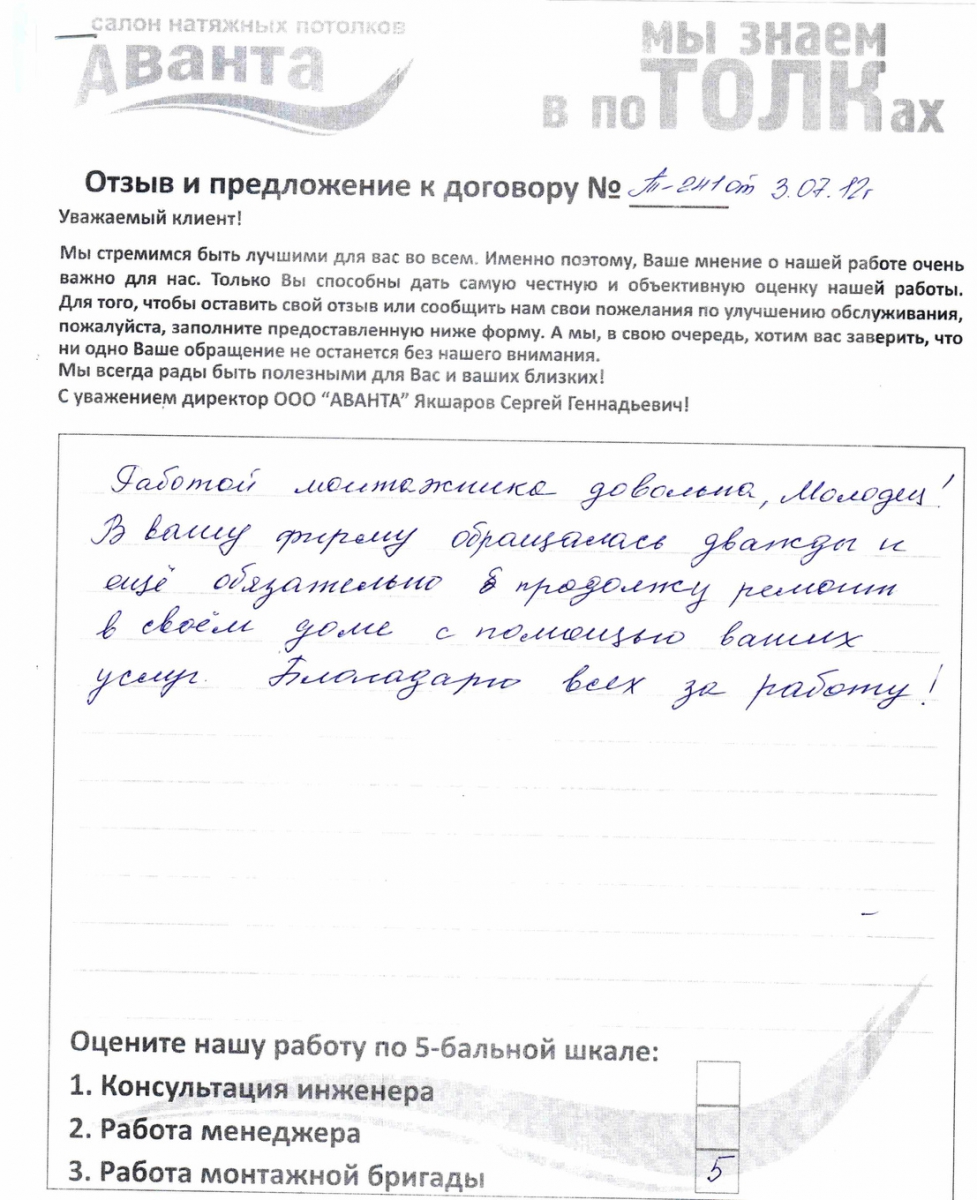 салон натяжных потолков
Аванта
мы знаем
в поТОЛКах
Отзыв и предложение к договору № Т-241 от 3.07.12г
Уважаемый клиент!
Мы стремимся быть лучшими для вас во всем. Именно поэтому, Ваше мнение о нашей работе очень
важно для нас. Только Вы способны дать самую честную и объективную оценку нашей работы.
Для того, чтобы оставить свой отзыв или сообщить нам свои пожелания по улучшению обслуживания,
пожалуйста, заполните предоставленную ниже форму. А мы, в свою очередь, хотим вас заверить, что
ни одно Ваше обращение не останется без нашего внимания.
Мы всегда рады быть полезными для Вас и ваших близких!
С уважением директор ООО “АВАНТА” Якшаров Сергей Геннадьевич!
Работой монтажника довольна, Молодец!
В вашу фирму обращалась дважды и
ещё обязательно продолжу ремонт
в своём доме с помощью ваших
услуг. Благодарю всех за работу!
Оцените нашу работу по 5-бальной шкале:
1. Консультация инженера
2. Работа менеджера
3. Работа монтажной бригады 5